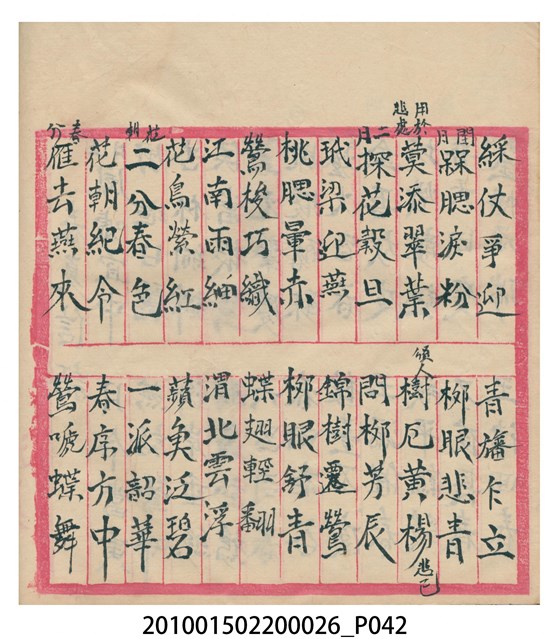 綵仗爭迎
青旛乍立
閏月
槑腮淚粉
柳眼悲青
用於悲處
蓂添翠葉
樹厄黃楊
悲已
二月
探花穀旦
問柳芳辰
玳梁迎燕
錦樹遷鶯
桃腮暈赤
柳眼舒青
鶯梭巧織
蝶翅輕翻
江南雨細
渭北雲浮
花鳥縈紅
蘋魚泛碧
花朝
二分春色
一派韶華
花朝紀令
春序方中
春分
雁去燕來
鶯唬蝶舞
201001502200026_P042